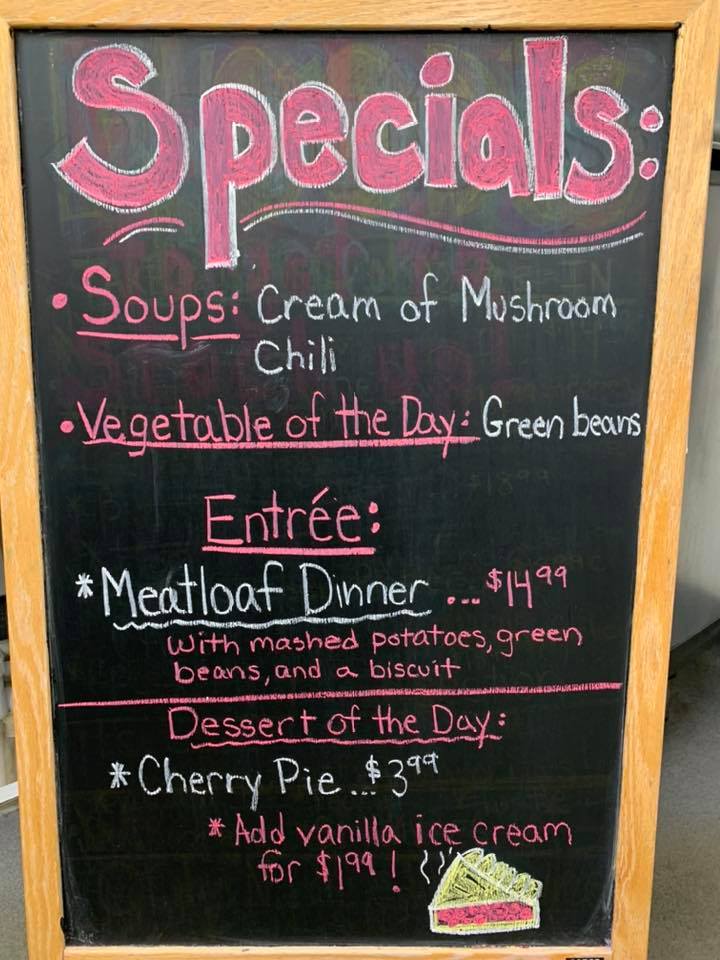 Specials:
• Soups: Cream of Mushroom
Chili
• Vegetable of the Day: Green beans
Entrée:
* Meatloaf Dinner ... $14.99
with mashed potatoes, green
beans, and a biscuit
Dessert of the Day:
* Cherry Pie ... $3.99
* Add vanilla ice cream
for $1.99!